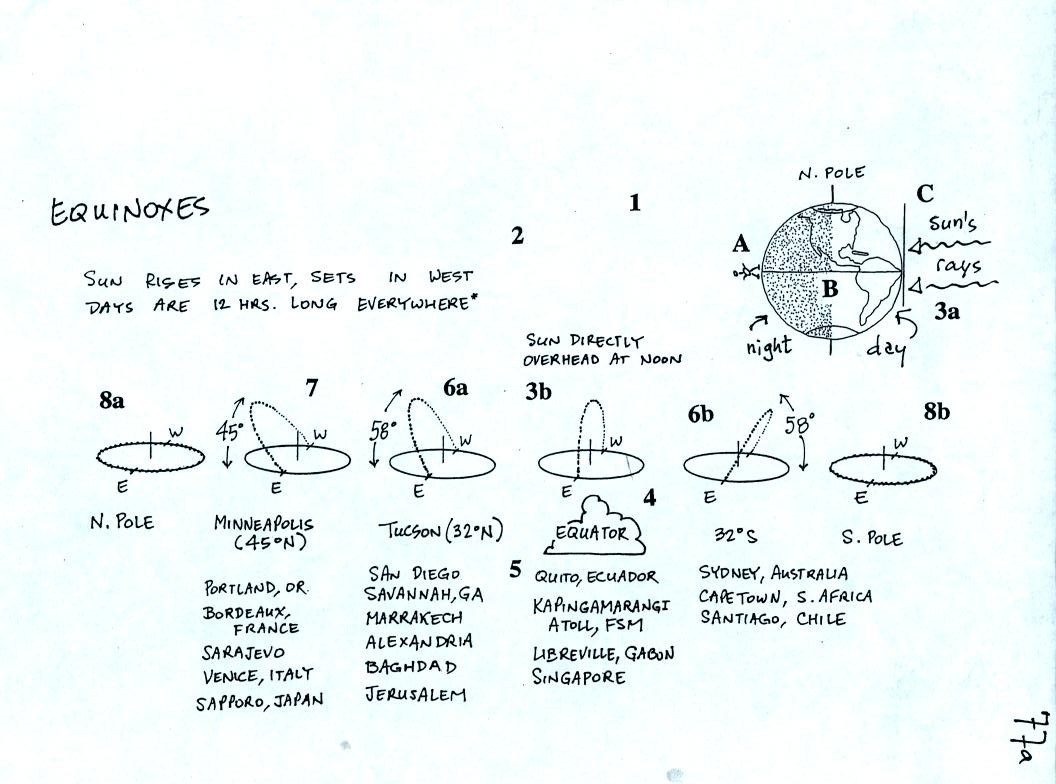 N. POLE
EQUINOXES
1
C
2
Sun's
A
rays
SUN RISES IN EAST, SETS IN WEST
B
DAYS ARE 12 HRS. LONG EVERYWHERE*
3a
SUN DIRECTLY
OVERHEAD AT NOON
night
day
8a
7
6a
3b
6b
8b
45°
58°
58°
W
W
W
W
W
E
E
E
E
E
E
4
N. POLE
MINNEAPOLIS
(45°N)
TUCSON (32°N)
EQUATOR
32°S
S. POLE
5
PORTLAND, OR.
BORDEAUX,
FRANCE
SARAJEVO
VENICE, ITALY
SAPPORO, JAPAN
SAN DIEGO
SAVANNAH, GA
MARRAKECH
ALEXANDRIA
BAGHDAD
JERUSALEM
QUITO, ECUADOR
KAPINGAMARANGI
ATOLL, FSM
LIBREVILLE, GABON
SINGAPORE
SYDNEY, AUSTRALIA
CAPETOWN, S. AFRICA
SANTIAGO, CHILE
77a